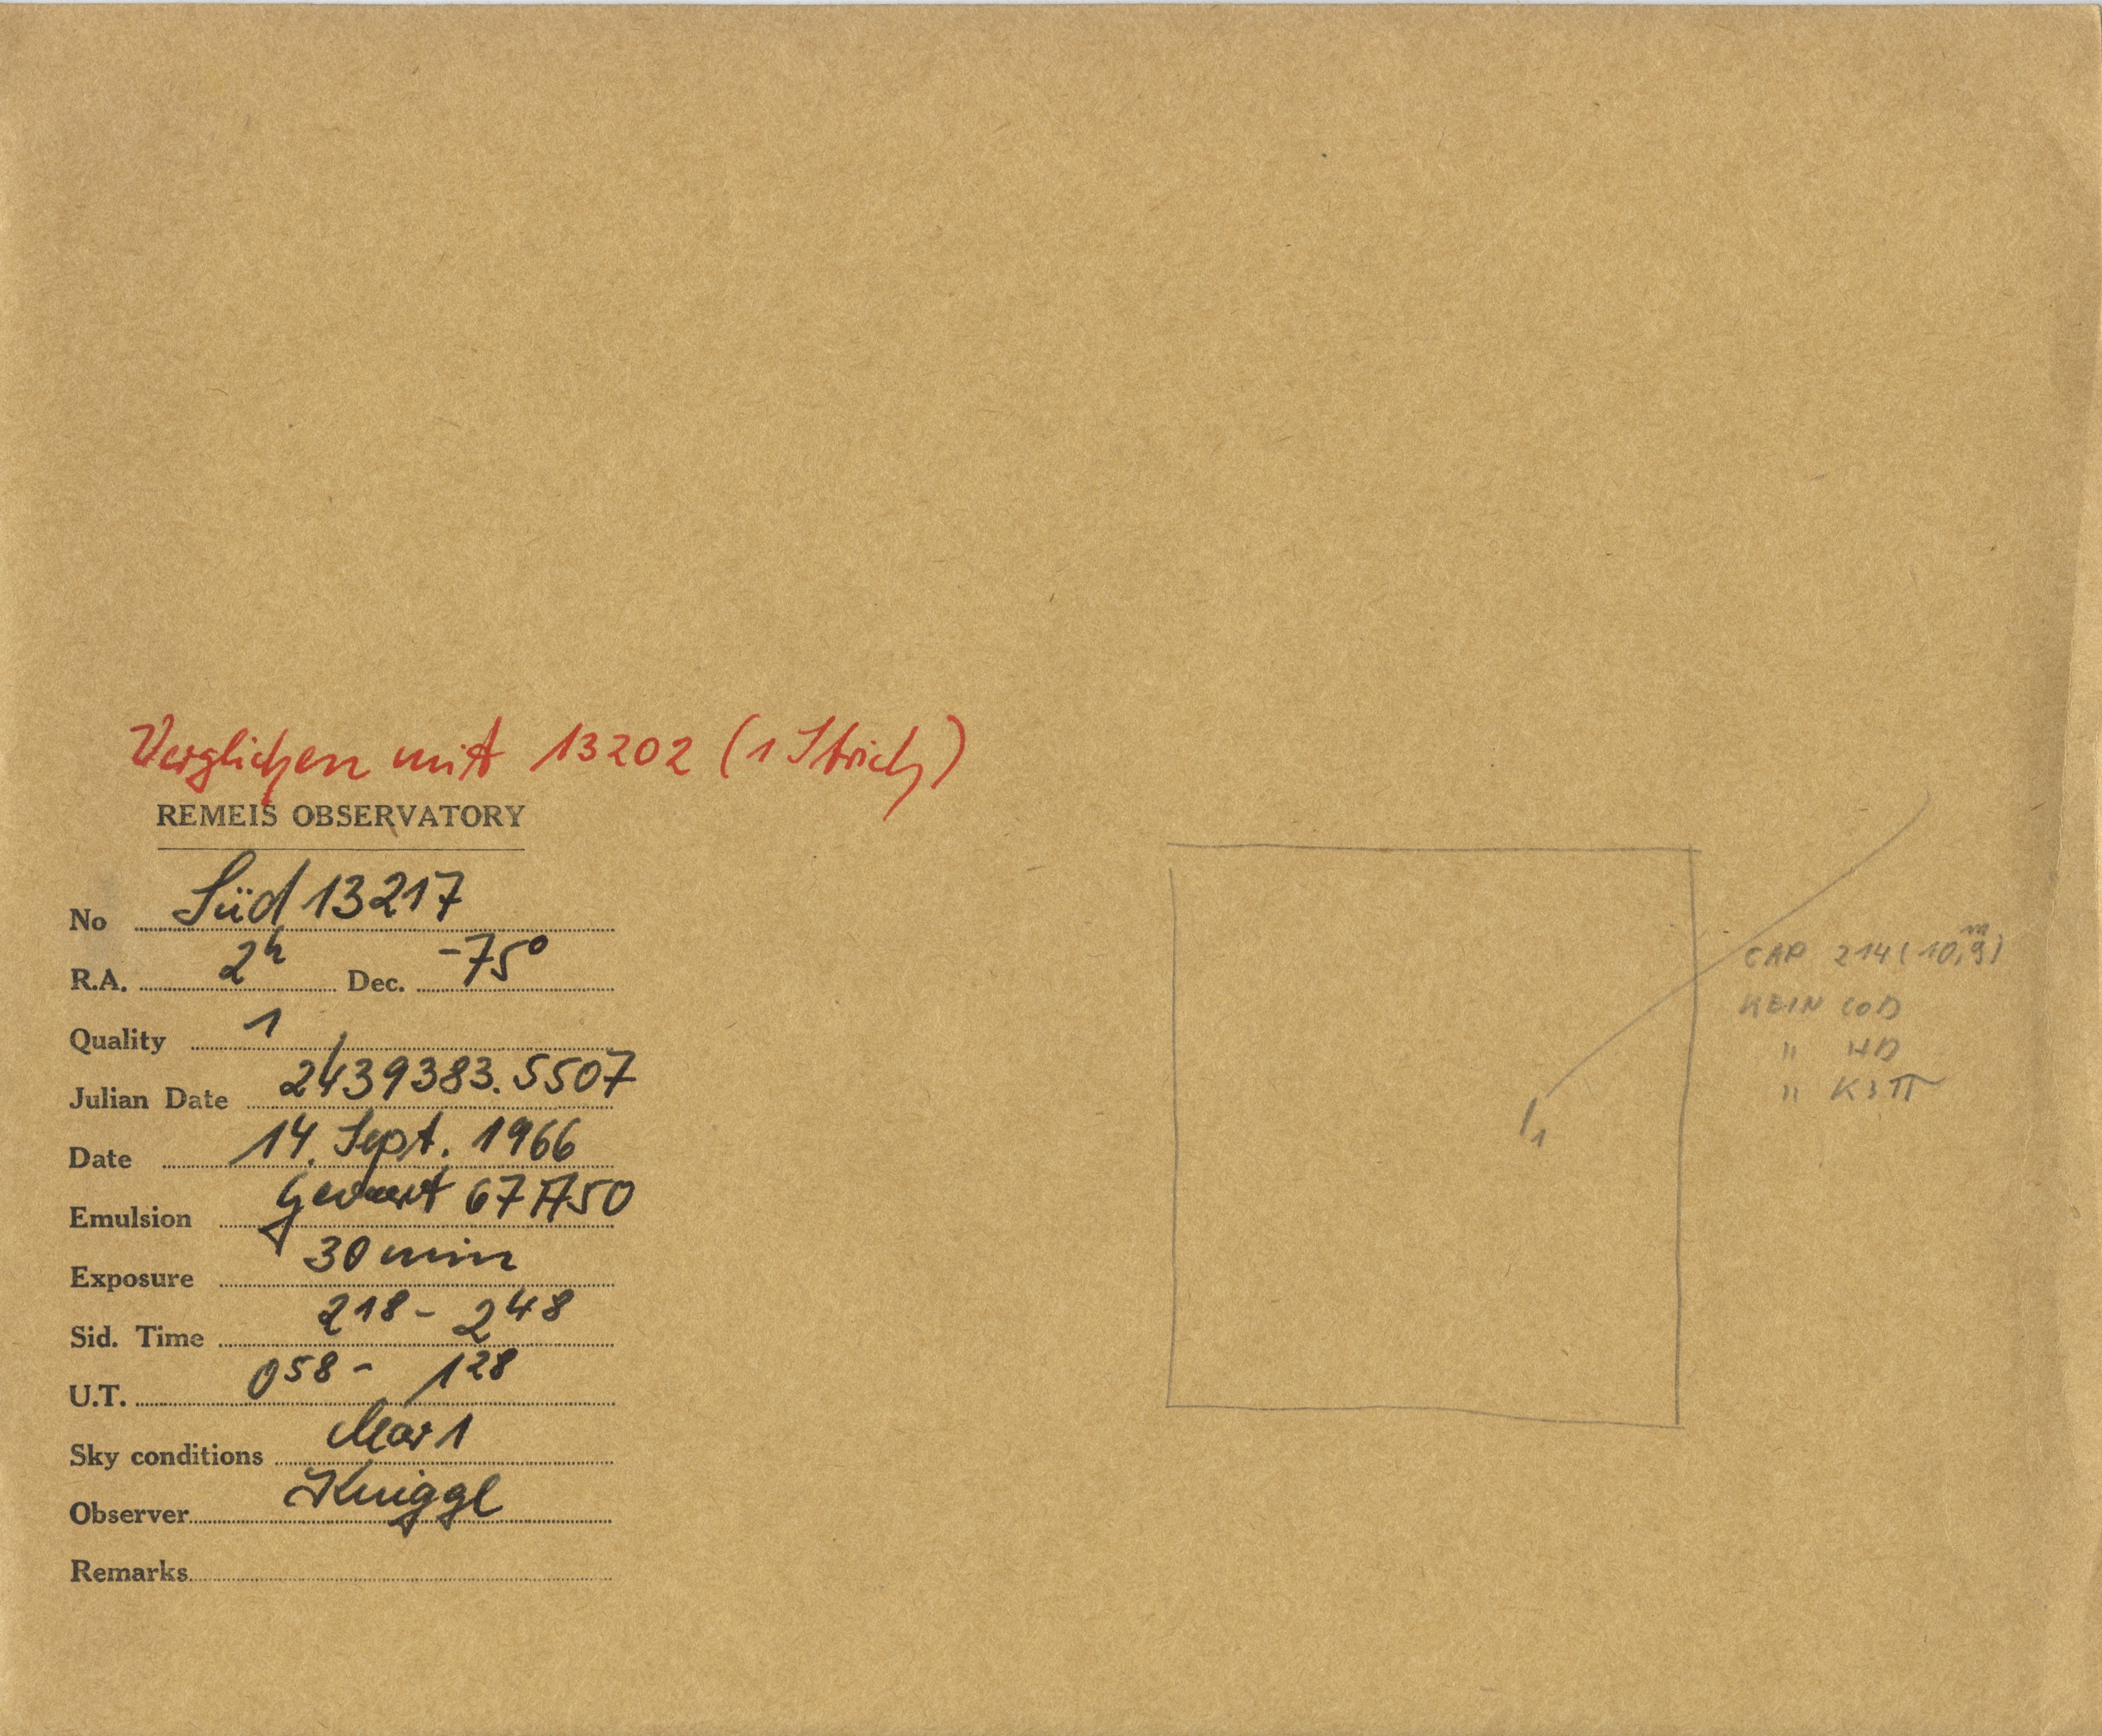 Verglichen mit 13202 (1 Strich)
REMEIS OBSERVATORY
No Süd 13217
R.A. 2h Dec. -75°
Quality 1
Julian Date 2439383.5507
Date 14. Sept. 1966
Emulsion Gevaert 67A50
Exposure 30 min
Sid. Time 2 18 - 2 48
U.T. 0 58 - 1 28
Sky conditions klar 1
Observer Kniggl
Remarks
CAP 214 (10,m9)
KEIN COD
" HD
" K3П
1